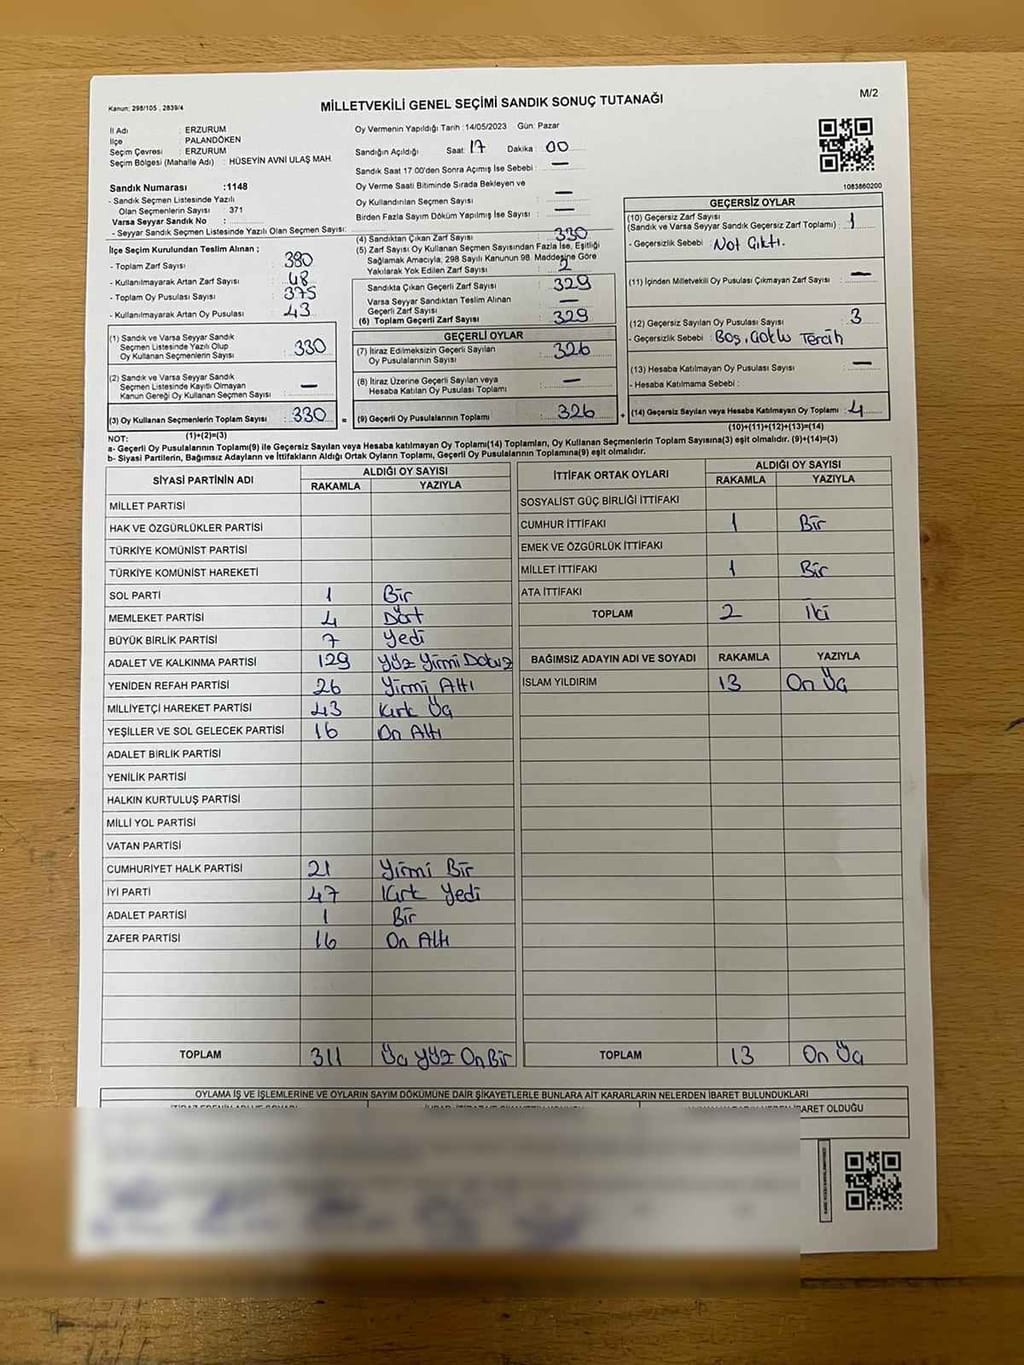 Kanun: 298/105 , 2839/4
MİLLETVEKİLİ GENEL SEÇİMİ SANDIK SONUÇ TUTANAĞI
M/2
İl Adı : ERZURUM
İlçe : PALANDÖKEN
Seçim Çevresi : ERZURUM
Seçim Bölgesi (Mahalle Adı) : HÜSEYİN AVNİ ULAŞ MAH.
Sandık Numarası :1148
- Sandık Seçmen Listesinde Yazılı
Olan Seçmenlerin Sayısı : 371
Varsa Seyyar Sandık No :
- Seyyar Sandık Seçmen Listesinde Yazılı Olan Seçmen Sayısı:
Oy Vermenin Yapıldığı Tarih :14/05/2023 Gün: Pazar
Sandığın Açıldığı Saat: 17 Dakika : 00
Sandık Saat 17.00'den Sonra Açımış İse Sebebi : —
Oy Verme Saati Bitiminde Sırada Bekleyen ve
Oy Kullandırılan Seçmen Sayısı : —
Birden Fazla Sayım Döküm Yapılmış İse Sayısı : —
1083860200
İlçe Seçim Kurulundan Teslim Alınan ;
- Toplam Zarf Sayısı : 380
- Kullanılmayarak Artan Zarf Sayısı : 48
- Toplam Oy Pusulası Sayısı : 375
- Kullanılmayarak Artan Oy Pusulası : 43
(1) Sandık ve Varsa Seyyar Sandık
Seçmen Listesinde Yazılı Olup
Oy Kullanan Seçmenlerin Sayısı : 330
(2) Sandık ve Varsa Seyyar Sandık
Seçmen Listesinde Kayıtlı Olmayan
Kanun Gereği Oy Kullanan Seçmen Sayısı : —
(3) Oy Kullanan Seçmenlerin Toplam Sayısı : 330 =
(1)+(2)=(3)
(4) Sandıktan Çıkan Zarf Sayısı : 330
(5) Zarf Sayısı Oy Kullanan Seçmen Sayısından Fazla İse, Eşitliği
Sağlamak Amacıyla, 298 Sayılı Kanunun 98. Maddesine Göre
Yakılarak Yok Edilen Zarf Sayısı : 2
Sandıkta Çıkan Geçerli Zarf Sayısı : 329
Varsa Seyyar Sandıktan Teslim Alınan
Geçerli Zarf Sayısı : —
(6) Toplam Geçerli Zarf Sayısı : 329
GEÇERLİ OYLAR
(7) İtiraz Edilmeksizin Geçerli Sayılan
Oy Pusulalarının Sayısı : 326
(8) İtiraz Üzerine Geçerli Sayılan veya
Hesaba Katılan Oy Pusulası Toplamı : —
(9) Geçerli Oy Pusulalarının Toplamı : 326 +
GEÇERSİZ OYLAR
(10) Geçersiz Zarf Sayısı
(Sandık ve Varsa Seyyar Sandık Geçersiz Zarf Toplamı) : 1
- Geçersizlik Sebebi : Not Çıktı.
(11) İçinden Milletvekili Oy Pusulası Çıkmayan Zarf Sayısı : —
(12) Geçersiz Sayılan Oy Pusulası Sayısı : 3
- Geçersizlik Sebebi : Boş, Çoklu Tercih
(13) Hesaba Katılmayan Oy Pusulası Sayısı : —
- Hesaba Katılmama Sebebi :
(14) Geçersiz Sayılan veya Hesaba Katılmayan Oy Toplamı : 4
(10)+(11)+(12)+(13)=(14)
NOT:
a- Geçerli Oy Pusulalarının Toplamı(9) ile Geçersiz Sayılan veya Hesaba katılmayan Oy Toplamı(14) Toplamları, Oy Kullanan Seçmenlerin Toplam Sayısına(3) eşit olmalıdır. (9)+(14)=(3)
b- Siyasi Partilerin, Bağımsız Adayların ve İttifakların Aldığı Ortak Oyların Toplamı, Geçerli Oy Pusulalarının Toplamına(9) eşit olmalıdır.
SİYASİ PARTİNİN ADI ALDIĞI OY SAYISI
RAKAMLA YAZIYLA
MİLLET PARTİSİ
HAK VE ÖZGÜRLÜKLER PARTİSİ
TÜRKİYE KOMÜNİST PARTİSİ
TÜRKİYE KOMÜNİST HAREKETİ
SOL PARTİ 1 Bir
MEMLEKET PARTİSİ 4 Dört
BÜYÜK BİRLİK PARTİSİ 7 Yedi
ADALET VE KALKINMA PARTİSİ 129 Yüz Yirmi Dokuz
YENİDEN REFAH PARTİSİ 26 Yirmi Altı
MİLLİYETÇİ HAREKET PARTİSİ 43 Kırk Üç
YEŞİLLER VE SOL GELECEK PARTİSİ 16 On Altı
ADALET BİRLİK PARTİSİ
YENİLİK PARTİSİ
HALKIN KURTULUŞ PARTİSİ
MİLLİ YOL PARTİSİ
VATAN PARTİSİ
CUMHURİYET HALK PARTİSİ 21 Yirmi Bir
İYİ PARTİ 47 Kırk Yedi
ADALET PARTİSİ 1 Bir
ZAFER PARTİSİ 16 On Altı
TOPLAM 311 Üç Yüz On Bir
İTTİFAK ORTAK OYLARI ALDIĞI OY SAYISI
RAKAMLA YAZIYLA
SOSYALİST GÜÇ BİRLİĞİ İTTİFAKI
CUMHUR İTTİFAKI 1 Bir
EMEK VE ÖZGÜRLÜK İTTİFAKI
MİLLET İTTİFAKI 1 Bir
ATA İTTİFAKI
TOPLAM 2 İki
BAĞIMSIZ ADAYIN ADI VE SOYADI RAKAMLA YAZIYLA
İSLAM YILDIRIM 13 On Üç
TOPLAM 13 On Üç
OYLAMA İŞ VE İŞLEMLERİNE VE OYLARIN SAYIM DÖKÜMÜNE DAİR ŞİKAYETLERLE BUNLARA AİT KARARLARIN NELERDEN İBARET BULUNDUKLARI
BARET OLDUĞU